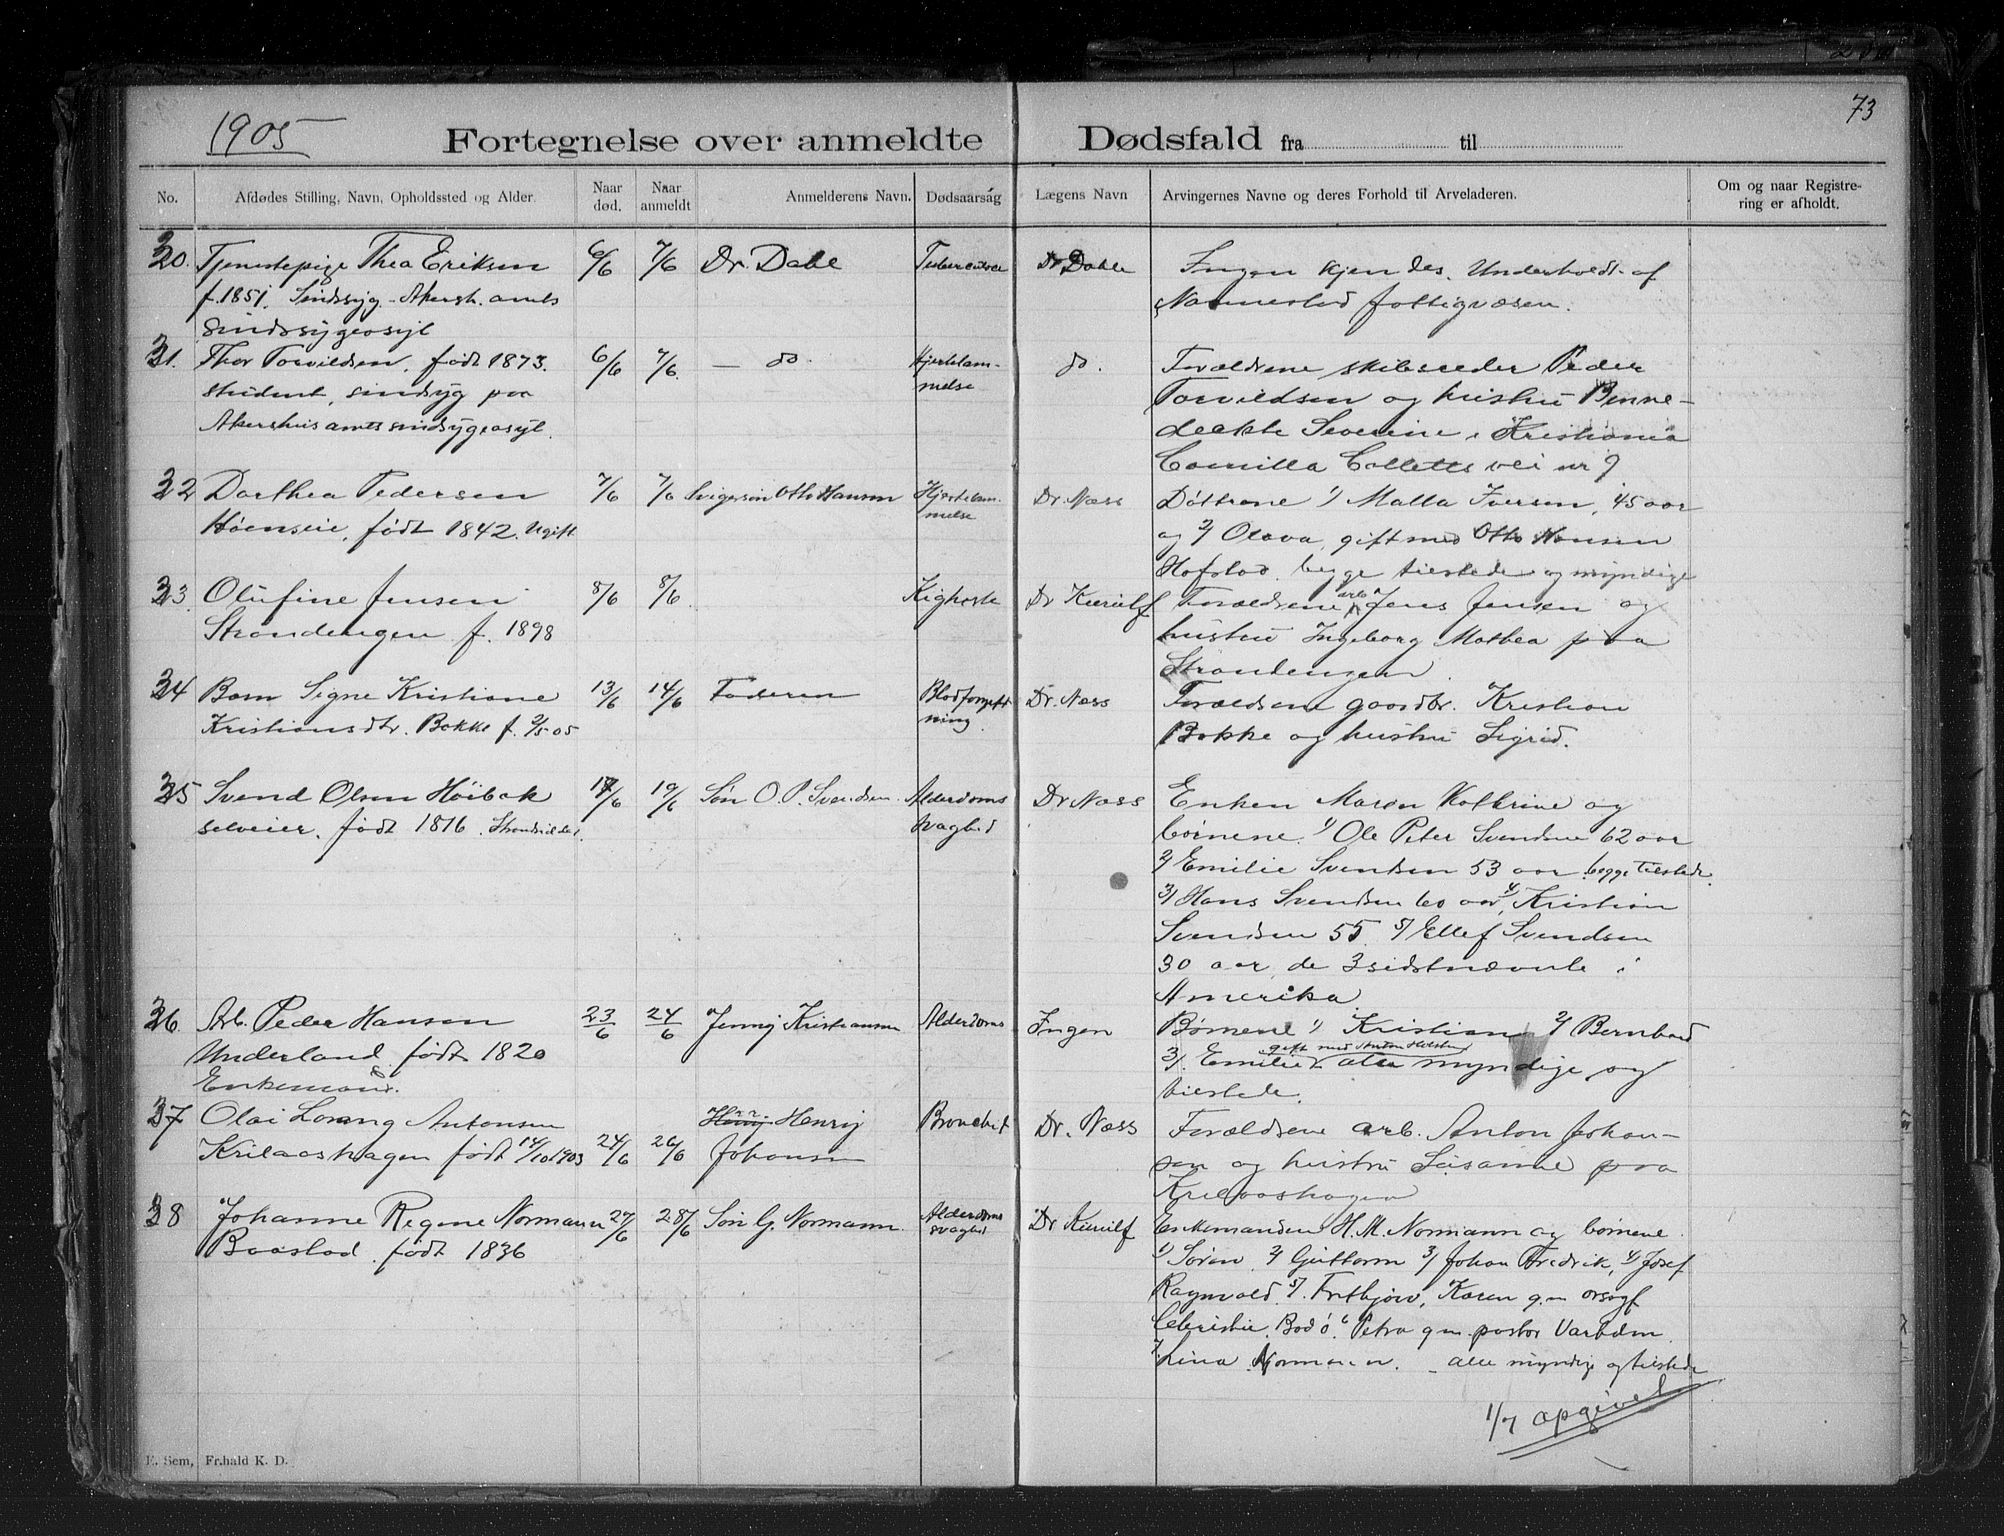 1905
73
Fortegnelse over anmeldte Dødsfald fra til
No. Afdødes Stilling, Navn, Opholdssted og Alder. Naar død. Naar anmeldt Anmelderens Navn. Dødsaarsag Lægens Navn Arvingernes Navne og deres Forhold til Arveladeren. Om og naar Registrering er afholdt.
320. Tjenestepige Thea Eriksen 6/6 7/6 Dr. Dahl Tuberculose Dr Dahl Ingen kjendes. Underholdt af
f. 1851. Sindssyg. Akersh. amts Nannestad fattigvæsen.
sindssygeasyl
321. Thor Torvildsen, født 1873. 6/6 7/6. — do. Hjertelam- do. Forældrene skibsreder Peder
student, sindsyg paa melse Torvildsen og hustru Benne-
Akershus amts sindsygeasyl. deakte Severine, Kristiania
Camilla Colletts vei nr 9
322 Dorthea Pedersen 7/6 7/6 Svigersøn Otto Hansen Hjertelam- Dr. Næss Døttrene 1/ Malla Iversen, 45 aar
Høenseie, født 1842. Ugift melse og 2/ Olava, gift med Otto Hansen
Hofstad. begge tilstede og myndige
323. Olufine Jensen 8/6 8/6. Kighoste Dr Kierulf Forældrene arb. Jens Jensen og
Strandengen f. 1898 hustru Ingeborg Mathea paa
Strandengen.
324 Barn Signe Kristiane 13/6 14/6 Faderen Blodforgift- Dr. Næss Forældrene gaardbr. Kristian
Kristiansdtr. Bakke f. 2/5 05 ning Bakke og hustru Sigrid.
325 Svend Olsen Høibak 17/6 19/6 Søn O. P. Svendsen. Alderdoms Dr Næss Enken Maren Kathrine og
selveier. født 1816. svaghed børnene. 1/ Ole Peter Svendsen 62 aar
2/ Emilie Svendsen 53 aar begge tilstede.
3/ Hans Svendsen 60 aar, 4/ Kristian
Svendsen 55. 5/ Ellef Svendsen
30 aar, de 3 sidstnævnte i
Amerika
326. Arb. Peder Hansen 23/6 24/6 Jenny Kristiansen Alderdoms Ingen Børnene 1/ Kristian 2/ Bernhard
Underland født 1820 3/. Emilie gift med Anton Holstad alle myndige og
Enkemand. tilstede.
327 Olai Loring Antonsen Henry Bronchit Dr. Næss Forældrene arb. Anton Johan-
Krilaashagen født 14/10 1903 24/6 26/6 Johansen sen og hustru Susanne paa
Krilaashagen
328 Johanne Regine Normann 27/6 28/6 Søn G. Normann. Alderdoms Dr Kierulf Enkemanden H. M. Normann og børnene.
Baastad. født 1836 svaghed 1/ Søren, 2/ Guttorm 3/ Johan Fredrik, 4/ Josef
Ragnvald. 5/. Frithjov, Karen g.m. orsagf
Christie. Bodø. 6 Petra g.m. pastor Varhdem
7. Lina Normann. — alle myndige og tilstede
1/7 opgivet
E. Sem, Fr.hald K. D.